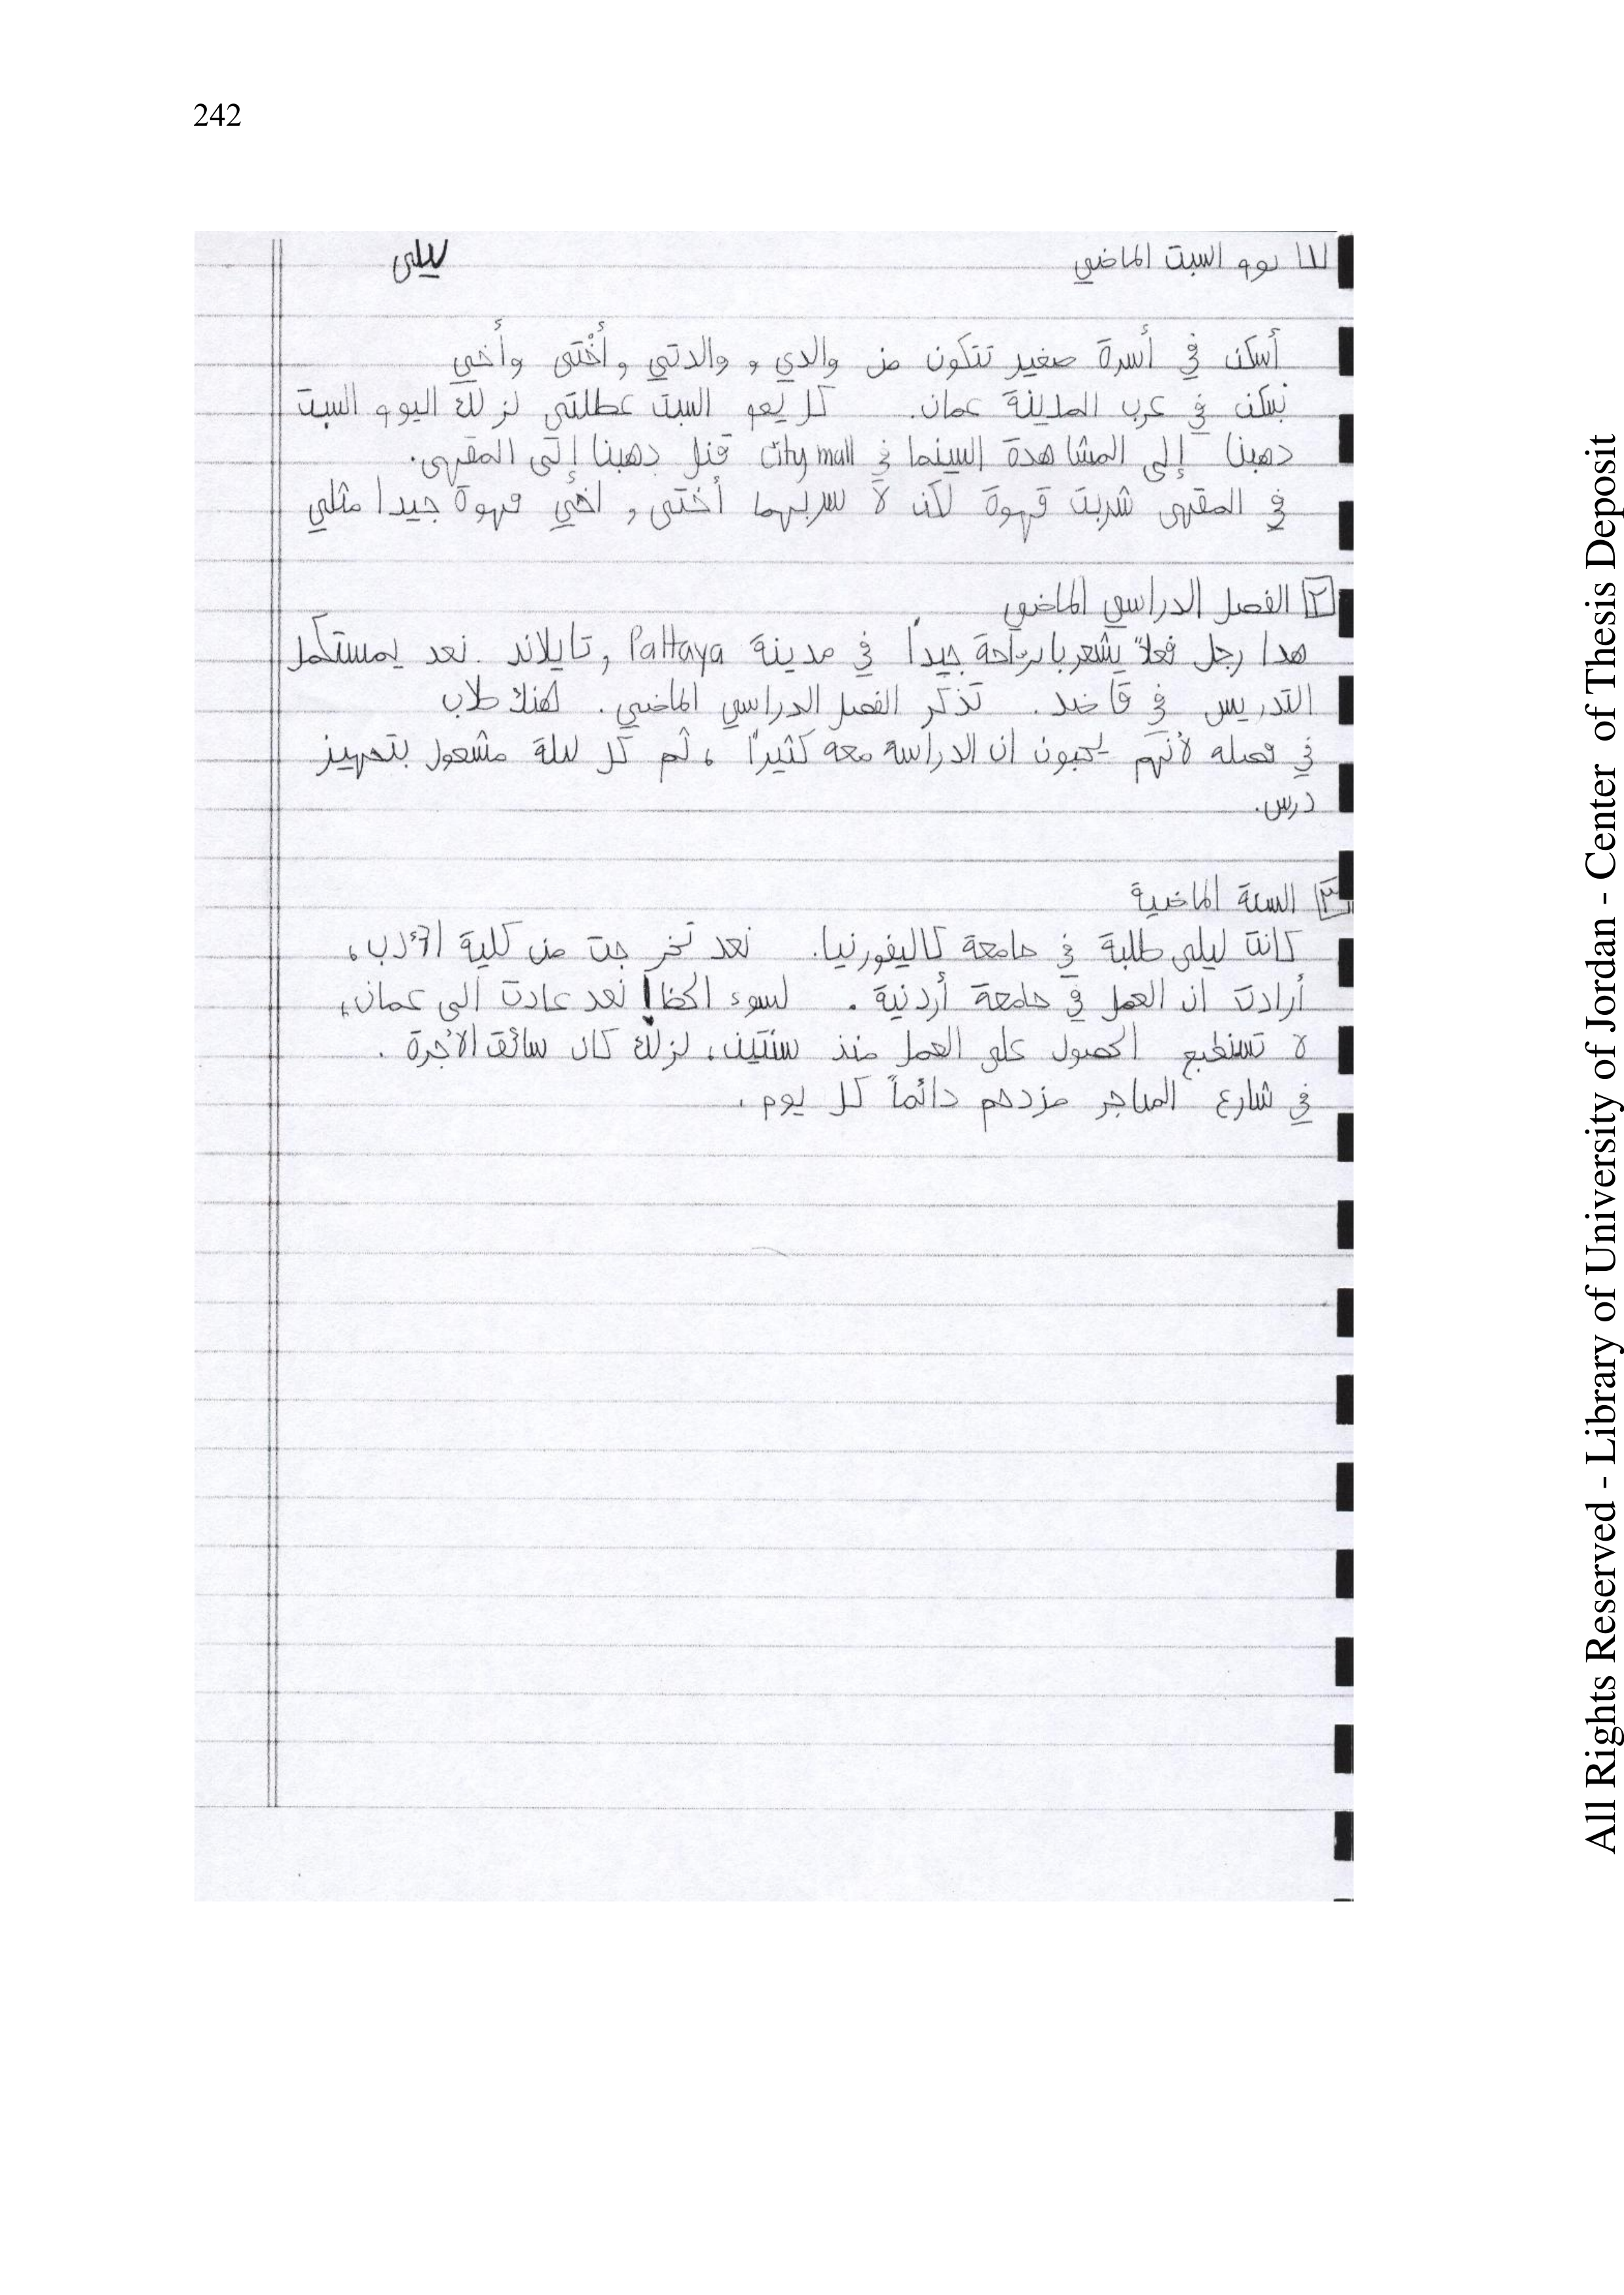 242
١ يوم السبت الماضي
ليلى
أسكن في أسرة صغير تتكون من والدي و والدتي و أُخْتي وأُخي
نسكن في عرب المدينة عمان. كل يعو السبت عطلتي لزلك اليوم السبت
دهبنا إلى المشاهدة السينما في City mall قنل دهبنا إلى المقهى.
في المقهى شربت قهوة لكن لا سربهما أختي و اخي قهوة جيدا مثلي
٢ الفصل الدراسي الماضي
هدا رجل فعلاً يشعر بارحة جيداً في مدينة Pattaya و تايلاند. نعد يمستكمل
التدريس في قاضد. تذكر الفصل الدراسي الماضي. هنك طلاب
في فصله لأنهم يحبون ان الدراسة معه كثيراً، ثم كل للة مشعول بتحهيز
درس.
٣ السنة الماضية
كانت ليلى طلبة في جامعة كاليفورنيا. نعد تخر جت من كلية الأدب،
أرادت ان العمل في جامعة أردنية. لسوء الحظ! نعد عادت الى عمان،
لا تستطيع الحصول على العمل منذ سنتين، لزلك كان سائق الأجرة.
في شارع المتاجر مزدحم دائماً كل يوم.
All Rights Reserved - Library of University of Jordan - Center of Thesis Deposit